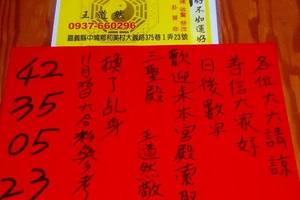 王道然
0937-660296
嘉義縣中埔鄉和美村大義路375巷1弄23號
各位大大請諒
等信大家好
日後數字
歡迎來本宮殿索取
三聖殿
王道然敬
換了乩身
11月習大合彩參考
42
35
05
23